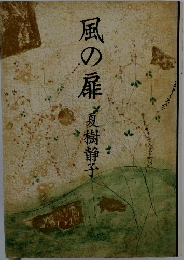 風の扉
夏樹静子